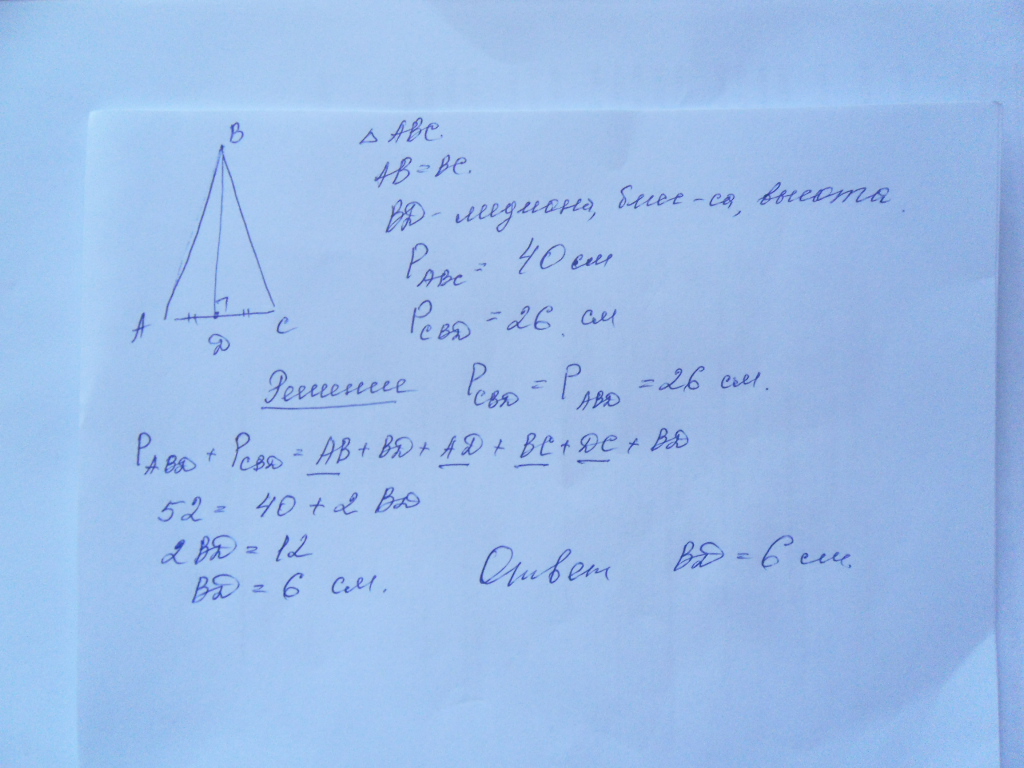 B
A
D
C
△ ABC.
AB = BC.
BD - медиана, бисс-са, высота.
P_ABC = 40 см
P_CBD = 26 см
Решение P_CBD = P_ABD = 26 см.
P_ABD + P_CBD = AB + BD + AD + BC + DC + BD
52 = 40 + 2 BD
2 BD = 12
BD = 6 см. Ответ BD = 6 см.